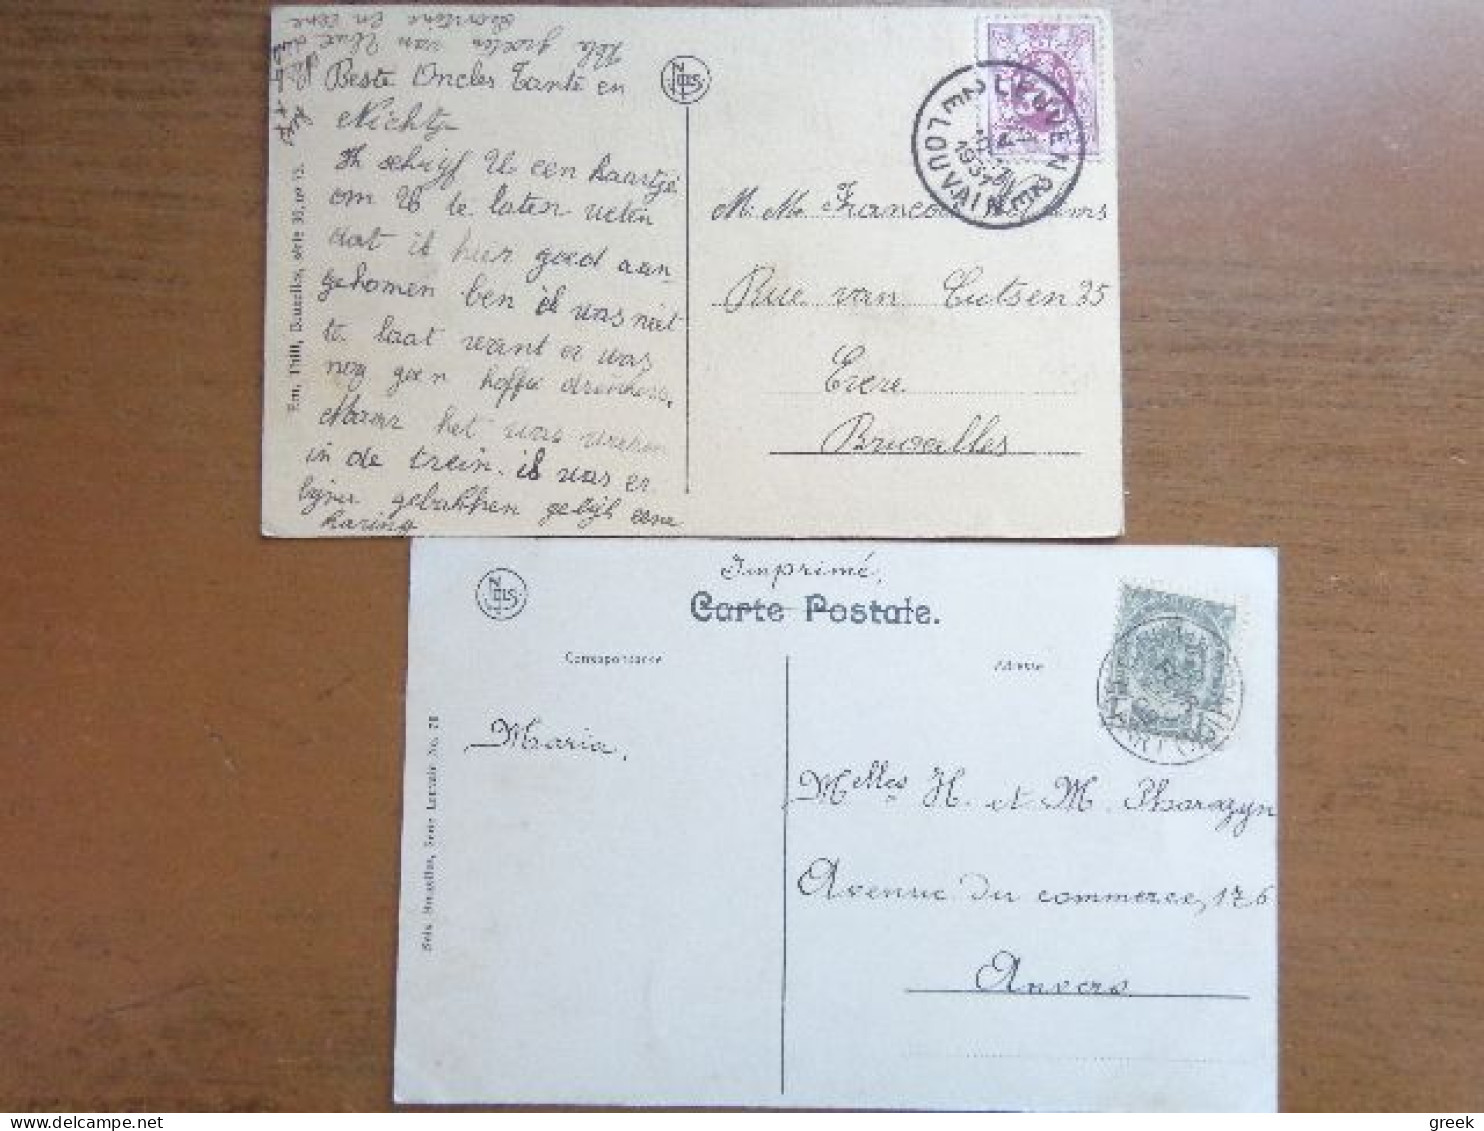 Beste Oncles Tante en
Nichtje
Ik schrijf U een kaartje
om U te laten weten
dat ik hier goed aan
gekomen ben ik was niet
te laat want er was
nog geen koffie drinkers.
Maar het was
in de trein. ik was er
bijna gebakken gelijk eene
haring
groeten van Uwe
en
Em. Thill, Bruxelles, série 30, nº 13.
NELS
LEUVEN
LOUVAIN
1931
M. Me
Rue van Cutsen 25
Evere
Bruxelles
Imprimé.
Carte Postale.
NELS
Correspondance
Adresse
Maria,
Nels, Bruxelles, Serie Louvain No. 78
Melles H. et M. Pharazyn
Avenue du commerce, 176
Anvers
greek